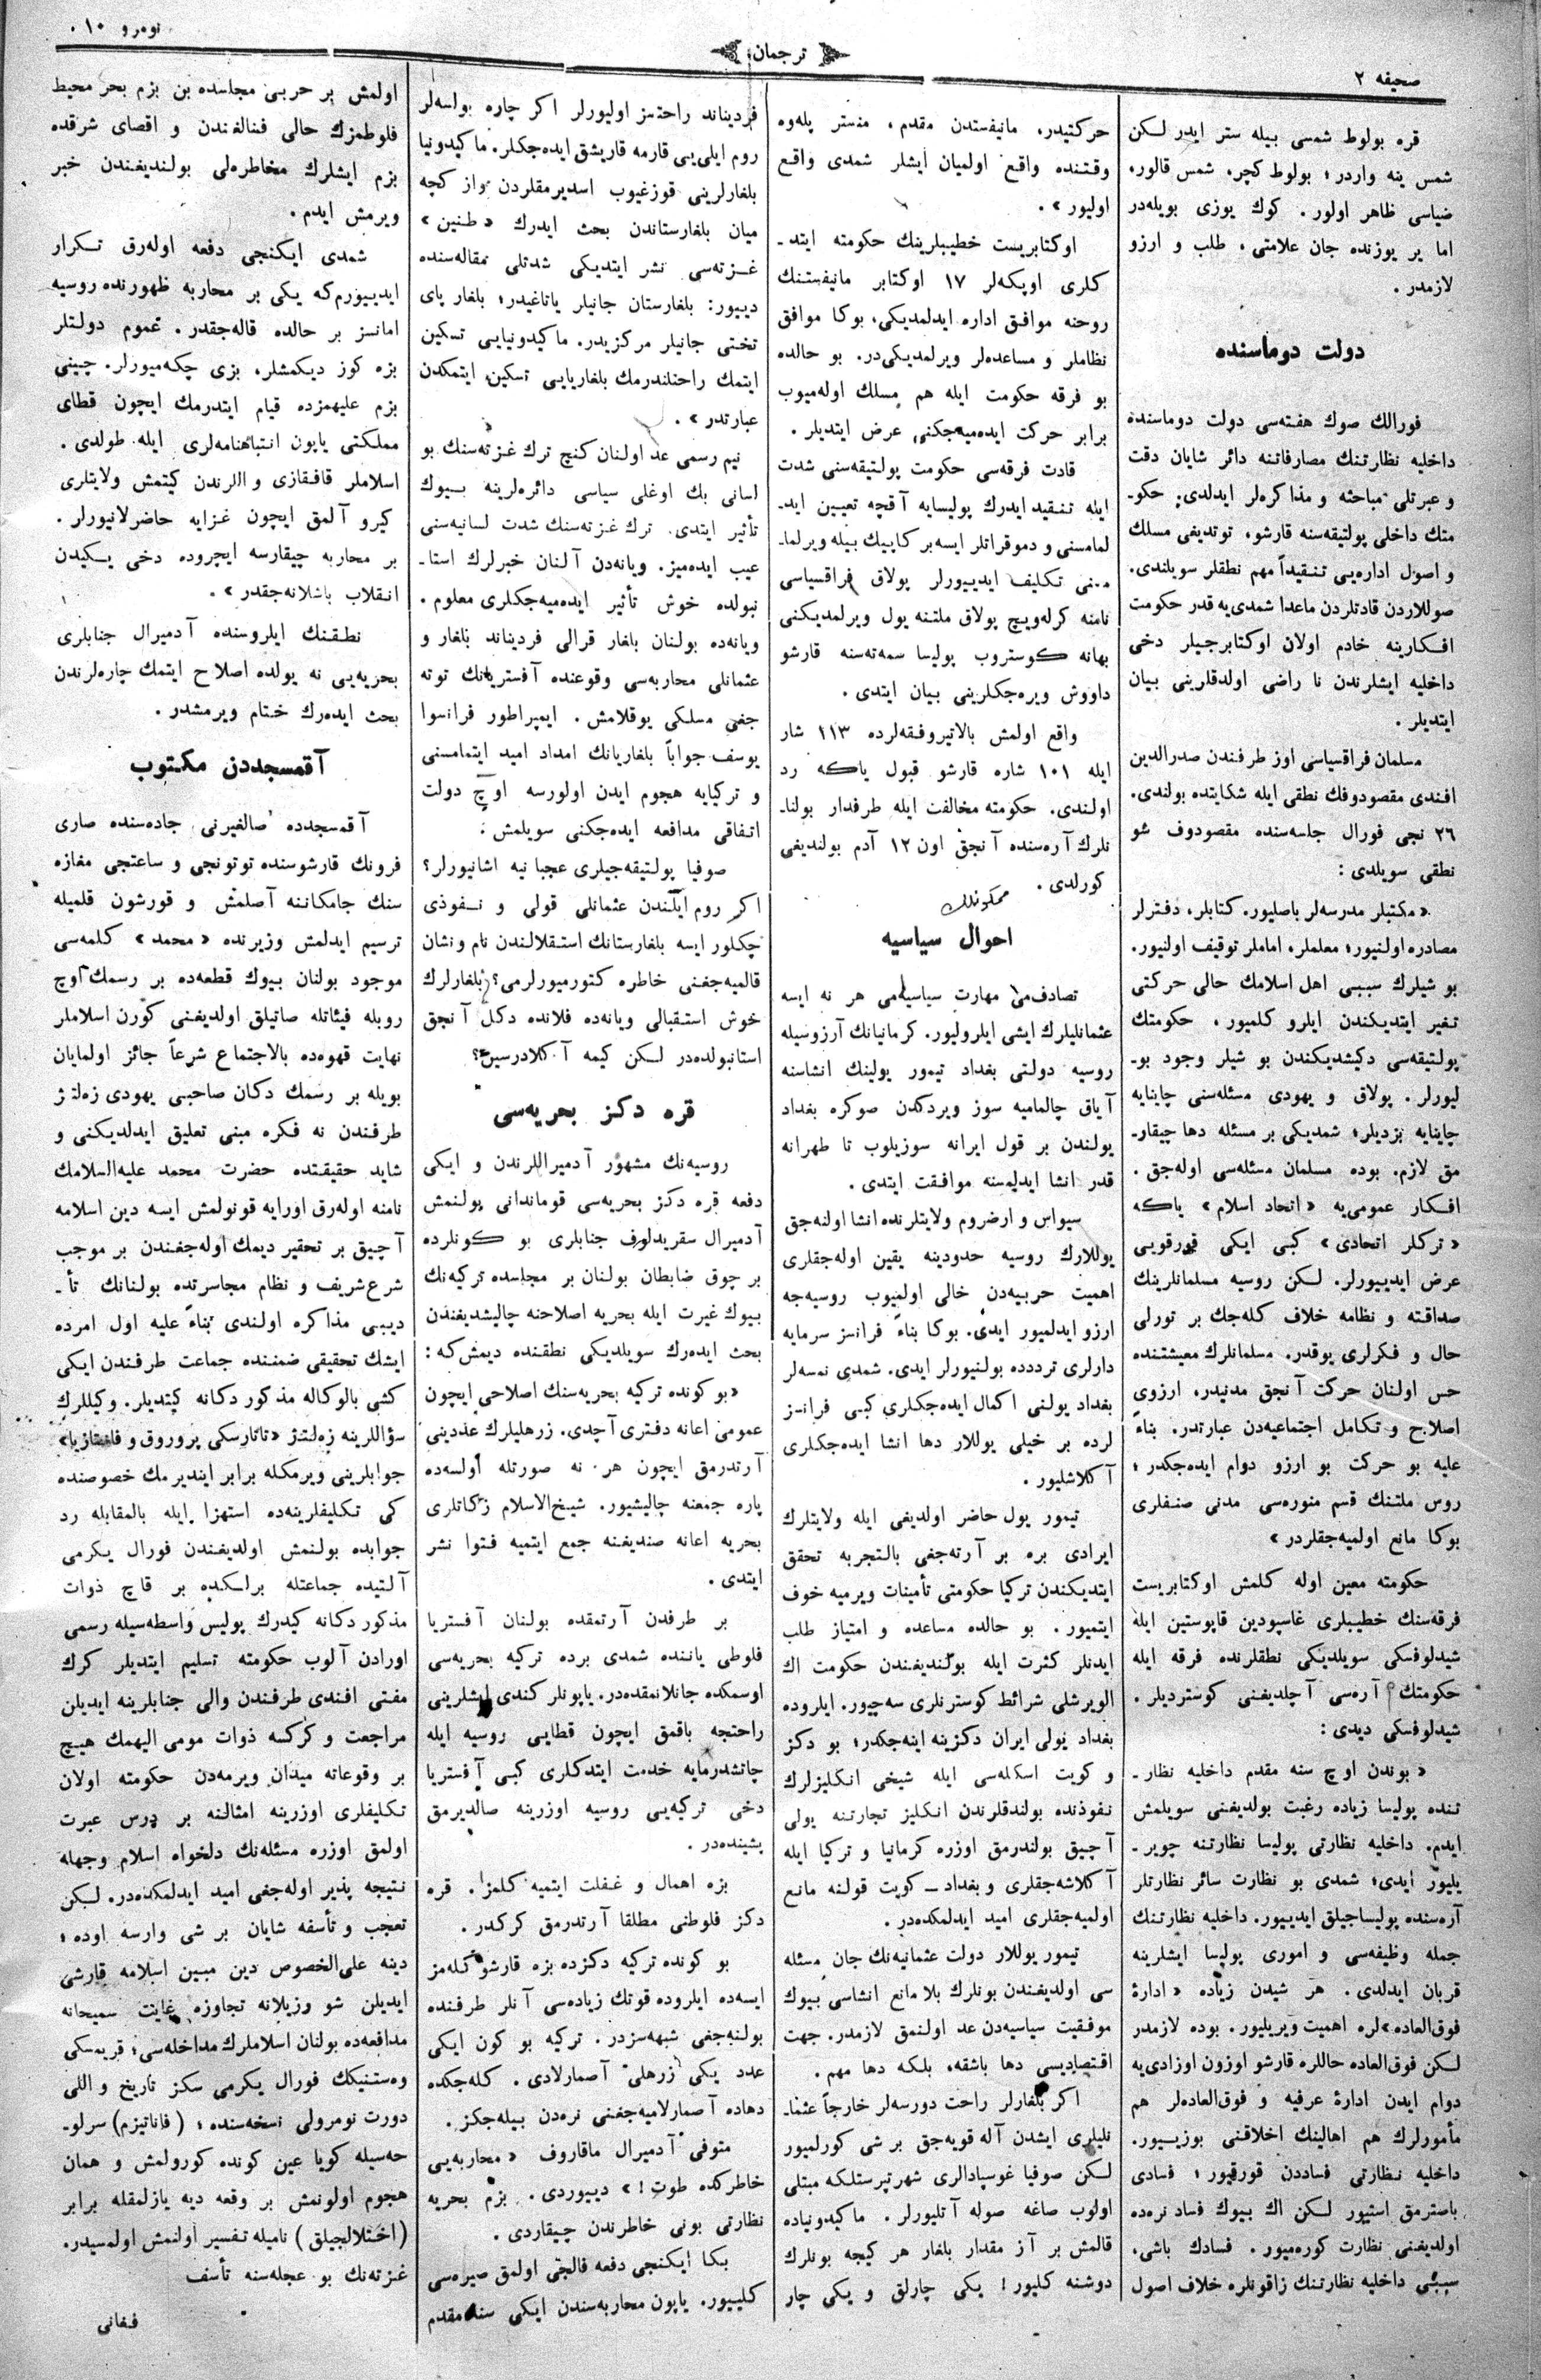 صحیفه ۲
ترجمان
نومرو ۱۰
قره بولوط شمسی بیله ستر ایدر لكن
شمس ینه واردر؛ بولوط كچر، شمس قالور،
ضیاسی ظاهر اولور. كوك یوزی بویله‌در
اما یر یوزنده جان علامتی، طلب و ارزو
لازمدر.
دولت دوماسنده
فورالك صوك هفته‌سی دولت دوماسنده
داخلیه نظارتنك مصارفاتنه دائر شایان دقت
و عبرتلی مباحثه و مذاكره‌لر ایدلدی. حكو-
متك داخلی پولتیقه‌سنه قارشو، توتدیغی مسلك
و اصول اداره‌یی تنقیداً مهم نطقلر سویلندی.
صوللاردن قادتلردن ماعدا شمدی‌یه قدر حكومت
افكارینه خادم اولان اوكتابرجیلر دخی
داخلیه ایشلرندن نا راضی اولدقلرینی بیان
ایتدیلر.
مسلمان فراقسیاسی اوز طرفندن صدرالدین
افندی مقصودوفك نطقی ایله شكایتده بولندی.
۲۶ نجی فورال جلسه‌سنده مقصودوف شو
نطقی سویلدی:
«مكتبلر مدرسه‌لر باصلیور. كتابلر، دفترلر
مصادره اولنیور؛ معلملر، اماملر توقیف اولنیور.
بو شیلرك سببی اهل اسلامك حالی حركتی
تغیر ایتدیكندن ایلرو كلمیور، حكومتك
پولتیقه‌سی دكیشدیكندن بو شیلر وجود بو-
لیورلر. پولاق و یهودی مسئله‌سنی چاینایه
چاینایه بزدیلر؛ شمدیكی بر مسئله دها چیقار-
مق لازم. بوده مسلمان مسئله‌سی اوله‌جق.
افكار عمومی‌یه «اتحاد اسلام» یاكه
«تركلر اتحادی» كبی ایكی قورقویی
عرض ایدییورلر. لكن روسیه مسلمانلرینك
صداقته و نظامه خلاف كله‌جك بر تورلی
حال و فكرلری یوقدر. مسلمانلرك معیشتنده
حس اولنان حركت آنجق مدنیدر، ارزوی
اصلاح و تكامل اجتماعیه‌دن عبارتدر. بناءً
علیه بو حركت بو ارزو دوام ایده‌جكدر؛
روس ملتنك قسم منوره‌سی مدنی صنفلری
بوكا مانع اولمیه‌جقلردر»
حكومته معین اوله كلمش اوكتابریست
فرقه‌سنك خطیبلری غاسپودین قاپوستین ایله
شیدلوفسكی سویلدیكی نطقلرنده فرقه ایله
حكومتك آره‌سی آچلدیغنی كوستردیلر.
شیدلوفسكی دیدی:
«بوندن اوچ سنه مقدم داخلیه نظار-
تنده پولیسا زیاده رغبت بولدیغنی سویلمش
ایدم. داخلیه نظارتی پولیسا نظارتنه چویر-
یلیور ایدی؛ شمدی بو نظارت سائر نظارتلر
آره‌سنده پولیساجیلق ایدییور. داخلیه نظارتنك
جمله وظیفه‌سی و اموری پولیسا ایشلرینه
قربان ایدلدی. هر شیدن زیاده «ادارهٔ
فوق‌العاده»لره اهمیت ویریلیور. بوده لازمدر
لكن فوق‌العاده حاللره قارشو اوزون اوزادی‌یه
دوام ایدن ادارهٔ عرفیه و فوق‌العاده‌لر هم
مأمورلرك هم اهالینك اخلاقنی بوزییور.
داخلیه نظارتی فساددن قورقیور؛ فسادی
باصترمق استیور لكن اك بیوك فساد نره‌ده
اولدیغنی نظارت كوره‌میور. فسادك باشی،
سببی داخلیه نظارتنك زاقونلره خلاف اصول
حركتیدر، مانیفستدن مقدم، منستر پله‌وه
وقتنده واقع اولمیان ایشلر شمدی واقع
اولیور».
اوكتابریست خطیبلرینك حكومته ایتد-
كلری اوپكه‌لر ۱۷ اوكتابر مانیفستنك
روحنه موافق اداره ایدلمدیكی، بوكا موافق
نظاملر و مساعده‌لر ویرلمدیكی‌در. بو حالده
بو فرقه حكومت ایله هم مسلك اوله‌میوب
برابر حركت ایده‌میه‌جكنی عرض ایتدیلر.
قادت فرقه‌سی حكومت پولتیقه‌سنی شدت
ایله تنقید ایدرك پولیسایه آقچه تعیین اید-
لمامسنی و دموقراتلر ایسه بر كاپیك بیله ویرلما-
منی تكلیف ایدییورلر پولاق فراقسیاسی
نامنه كرله‌ویچ پولاق ملتنه یول ویرلمدیكنی
بهانه كوستروب پولیسا سمه‌ته‌سنه قارشو
داووش ویره‌جكلرینی بیان ایتدی.
واقع اولمش بالاتیروفقه‌لرده ۱۱۳ شار
ایله ۱۰۱ شاره قارشو قبول یاكه رد
اولندی. حكومته مخالفت ایله طرفدار بولنا-
نلرك آره‌سنده آنجق اون ۱۲ آدم بولندیغی
كورلدی.
احوال سیاسیه
تصادف‌می مهارت سیاسیه‌می هر نه ایسه
عثمانلیلرك ایشی ایلرولیور. كرمانیانك آرزوسیله
روسیه دولتی بغداد تیمور یولینك انشاسنه
آیاق چالمامیه سوز ویردكدن صوكره بغداد
یولندن بر قول ایرانه سوزیلوب تا طهرانه
قدر انشا ایدلمسنه موافقت ایتدی.
سیواس و ارضروم ولایتلرنده انشا اولنه‌جق
یوللارك روسیه حدودینه یقین اوله‌جقلری
اهمیت حربیه‌دن خالی اولمیوب روسیه‌جه
ارزو ایدلمیور ایدی. بوكا بناءً فرانسز سرمایه
دارلری ترددده بولنیورلر ایدی. شمدی نمسه‌لر
بغداد یولنی اكمال ایده‌جكلری كبی فرانسز
لرده بر خیلی یوللار دها انشا ایده‌جكلری
آكلاشلیور.
تیمور یول حاضر اولدیغی ایله ولایتلرك
ایرادی بره بر آرته‌جغی بالتجربه تحقق
ایتدیكندن تركیا حكومتی تأمینات ویرمیه خوف
ایتمیور. بو حالده مساعده و امتیاز طلب
ایدنلر كثرت ایله بولندیغندن حكومت اك
الویرشلی شرائط كوسترنلری سه‌چیور. ایلروده
بغداد یولی ایران دكزینه اینه‌جكدر؛ بو دكز
و كویت اسكله‌سی ایله شیخی انكلیزلرك
نفوذنده بولندقلرندن انكلیز تجارتنه یولی
آچیق بولندرمق اوزره كرمانیا و تركیا ایله
آكلاشه‌جقلری و بغداد—كویت قولنه مانع
اولمیه‌جقلری امید ایدلمكده‌در.
تیمور یوللار دولت عثمانیه‌نك جان مسئله
سی اولدیغندن بونلرك بلا مانع انشاسی بیوك
موفقیت سیاسیه‌دن عد اولنمق لازمدر. جهت
اقتصادیسی دها باشقه، بلكه دها مهم.
اكر بلغارلر راحت دورسه‌لر خارجاً عثما-
نلیلری ایشدن آله قویه‌جق بر شی كورلمیور
لكن صوفیا غوسپادالری شهرتپرستلكه مبتلی
اولوب صاغه صوله آتلیورلر. ماكیدونیاده
قالمش بر آز مقدار بلغار هر كیجه بونلرك
دوشنه كلیور! یكی چارلق و یكی چار
فردیناند راحتسز اولیورلر اكر چاره بولسه‌لر
روم ایلی‌یی قارمه قاریشق ایده‌جكلر. ماكیدونیا
بلغارلرینی قوزغیوب اسدیرمقلردن واز كچه
میان بلغارستاندن بحث ایدرك «طنین»
غزته‌سی نشر ایتدیكی شدتلی مقاله‌سنده
دییور: بلغارستان جانیلر یاتاغیدر؛ بلغار پای
تختی جانیلر مركزیدر. ماكیدونیایی تسكین
ایتمك راحتلندرمك بلغاریایی تسكین ایتمكدن
عبارتدر».
نیم رسمی عد اولنان كنچ ترك غزته‌سنك بو
لسانی بك اوغلی سیاسی دائره‌لرینه بیوك
تأثیر ایتدی. ترك غزته‌سنك شدت لسانیه‌سنی
عیب ایده‌میز. ویانه‌دن آلنان خبرلرك استا-
نبولده خوش تأثیر ایده‌میه‌جكلری معلوم.
ویانه‌ده بولنان بلغار قرالی فردیناند بلغار و
عثمانلی محاربه‌سی وقوعنده آفستریانك توته
جغی مسلكی یوقلامش. ایمپراطور فرانسوا
یوسف جواباً بلغاریانك امداد امید ایتمامسنی
و تركیایه هجوم ایدن اولورسه اوچ دولت
اتفاقی مدافعه ایده‌جكنی سویلمش.
صوفیا پولتیقه‌جیلری عجبا نیه اشانیورلر؟
اكر روم ایلندن عثمانلی قولی و نفوذی
چكلور ایسه بلغارستانك استقلالندن نام و نشان
قالمیه‌جغنی خاطره كتورمیورلرمی؟ بلغارلرك
خوش استقبالی ویانه‌ده فلانده دكل آنجق
استانبولده‌در لكن كیمه آكلادرسین؟
قره دكز بحریه‌سی
روسیه‌نك مشهور آدمیراللرندن و ایكی
دفعه قره دكز بحریه‌سی قوماندانی بولنمش
آدمیرال سقریدلوف جنابلری بو كونلرده
بر چوق ضابطان بولنان بر مجلسده تركیه‌نك
بیوك غیرت ایله بحریه اصلاحنه چالیشدیغندن
بحث ایده‌رك سویلدیكی نطقنده دیمش‌كه:
«بو كونده تركیه بحریه‌سنك اصلاحی ایچون
عمومی اعانه دفتری آچدی. زرهلیلرك عددینی
آرتدرمق ایچون هر نه صورتله اولسه‌ده
پاره جمعنه چالیشیور. شیخ‌الاسلام زكاتلری
بحریه اعانه صندیغنه جمع ایتمیه فتوا نشر
ایتدی.
بر طرفدن آرتمقده بولنان آفستریا
فلوطی یاننده شمدی برده تركیه بحریه‌سی
اوسمكده جانلانمقده‌در. یاپونلر كندی ایشلرینی
راحتجه باقمق ایچون قطایی روسیه ایله
چاتشدرمایه خدمت ایتدكلری كبی آفستریا
دخی تركیه‌یی روسیه اوزرینه صالدیرمق
پشینده‌در.
بزه اهمال و غفلت ایتمیه كلمز. قره
دكز فلوطنی مطلقا آرتدرمق كركدر.
بو كونده تركیه دكزده بزه قارشو كله‌مز
ایسه‌ده ایلروده قوتك زیاده‌سی آنلر طرفنده
بولنه‌جغی شبهه‌سزدر. تركیه بو كون ایكی
عدد یكی زرهلی آصمارلادی. كله‌جكده
دهاده آصمارلامیه‌جغنی نره‌دن بیله‌جكز.
متوفی آدمیرال ماقاروف «محاربه‌یی
خاطركده طوت!» دییوردی. بزم بحریه
نظارتی بونی خاطرندن چیقاردی.
بكا ایكنجی دفعه فالجی اولمق صیره‌سی
كلییور. یاپون محاربه‌سندن ایكی سنه مقدم
اولمش بر حربی مجلسده بن بزم بحر محیط
فلوطمزك حالی فنالغندن و اقصای شرقده
بزم ایشلرك مخاطره‌لی بولندیغندن خبر
ویرمش ایدم.
شمدی ایكنجی دفعه اوله‌رق تكرار
ایدییورم‌كه یكی بر محاربه ظهورنده روسیه
امانسز بر حالده قاله‌جقدر. عموم دولتلر
بزه كوز دیكمشلر، بزی چكه‌میورلر. چینی
بزم علیهمزده قیام ایتدرمك ایچون قطای
مملكتی یاپون انتباهنامه‌لری ایله طولدی.
اسلاملر قافقازی و اللرندن كیتمش ولایتلری
كیرو آلمق ایچون غزایه حاضرلانیورلر.
بر محاربه چیقارسه ایچروده دخی یكیدن
انقلاب باشلانه‌جقدر».
نطقنك ایلروسنده آدمیرال جنابلری
بحریه‌یی نه یولده اصلاح ایتمك چاره‌لرندن
بحث ایده‌رك ختام ویرمشدر.
آقمسجددن مكتوب
آقمسجدده صالغیرنی جاده‌سنده صاری
فرونك قارشوسنده توتونجی و ساعتجی مغازه
سنك جامكاننه آصلمش و قورشون قلمیله
ترسیم ایدلمش وزیرنده «محمد» كلمه‌سی
موجود بولنان بیوك قطعه‌ده بر رسمك اوچ
روبله فیئاتله صاتیلق اولدیغنی كورن اسلاملر
نهایت قهوه‌ده بالاجتماع شرعاً جائز اولمایان
بویله بر رسمك دكان صاحبی یهودی زه‌لتژ
طرفندن نه فكره مبنی تعلیق ایدلدیكنی و
شاید حقیقتده حضرت محمد علیه‌السلامك
نامنه اوله‌رق اورایه قونولمش ایسه دین اسلامه
آچیق بر تحقیر دیمك اوله‌جغندن بر موجب
شرع شریف و نظام مجاسرتده بولنانك تأ-
دیبی مذاكره اولندی بناءً علیه اول امرده
ایشك تحقیقی ضمننده جماعت طرفندن ایكی
كشی بالوكاله مذكور دكانه كیتدیلر. وكیللرك
سؤاللرینه زه‌لتژ «تاتارسكی پروروق و فانتازیا»
جوابلرینی ویرمكله برابر ایندیرمك خصوصنده
كی تكلیفلرینه‌ده استهزا ایله بالمقابله رد
جوابده بولنمش اولدیغندن فورال یكرمی
آلتیده جماعتله برلكده بر قاچ ذوات
مذكور دكانه كیدرك پولیس واسطه‌سیله رسمی
اورادن آلوب حكومته تسلیم ایتدیلر كرك
مفتی افندی طرفندن والی جنابلرینه ایدیلن
مراجعت و كركسه ذوات مومی الیهمك هیچ
بر وقوعاته میدان ویرمه‌دن حكومته اولان
تكلیفلری اوزرینه امثالنه بر درس عبرت
اولمق اوزره مسئله‌نك دلخواه اسلام وجهله
نتیجه پذیر اوله‌جغی امید ایدلمكده‌در. لكن
تعجب و تأسفه شایان بر شی وارسه اوده؛
دینه علی‌الخصوص دین مبین اسلامه قارشی
ایدیلن شو رزیلانه تجاوزه غایت سمیحانه
مدافعه‌ده بولنان اسلاملرك مداخله‌سی؛ قریمسكی
وه‌ستنیكك فورال یكرمی سكز تاریخ و اللی
دورت نومرولی نسخه‌سنده؛ (فاناتیزم) سرلو-
حه‌سیله كویا عین كونده كورولمش و همان
هجوم اولونمش بر وقعه دیه یازلمقله برابر
(اختلالجیلق) نامیله تفسیر اولنمش اولمسیدر.
غزته‌نك بو عجله‌سنه تأسف
فغانی